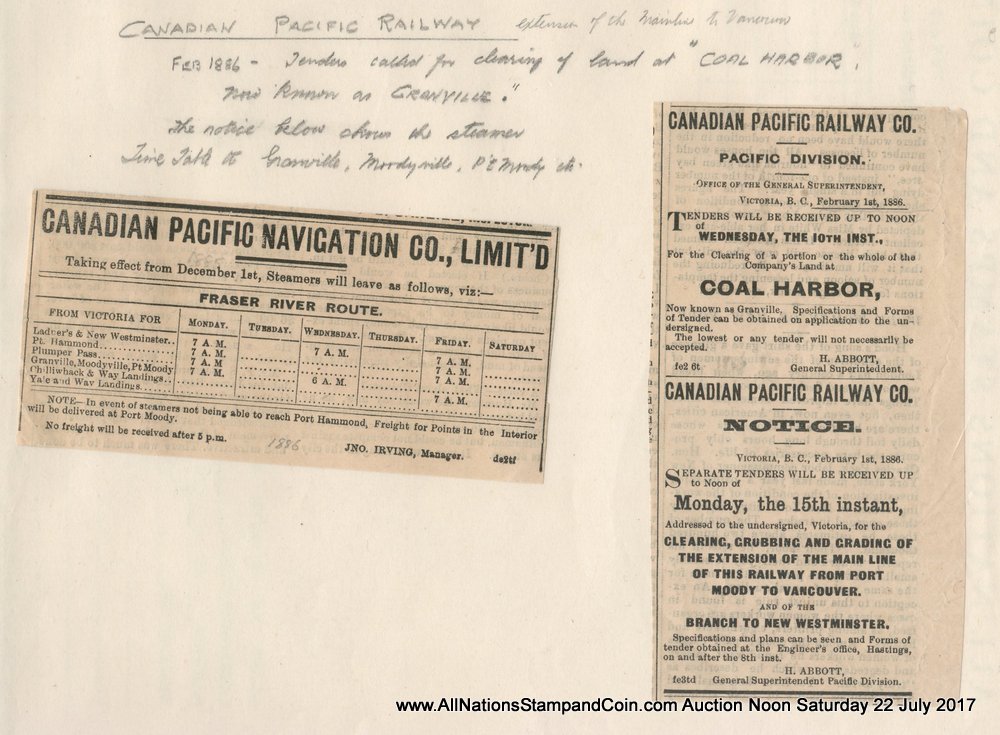 CANADIAN PACIFIC RAILWAY extension of the Mainline to Vancouver
FEB 1886 - Tenders called for clearing of land at "COAL HARBOR,
now known as GRANVILLE."
The notice below shows the steamer
Time Table to Granville, Moodyville, Pt Moody etc.
CANADIAN PACIFIC NAVIGATION CO., LIMIT'D
Taking effect from December 1st, Steamers will leave as follows, viz:—
FRASER RIVER ROUTE.
FROM VICTORIA FOR MONDAY. TUESDAY. WEDNESDAY. THURSDAY. FRIDAY. SATURDAY
Ladner's & New Westminster.. 7 A. M. 7 A. M. 7 A. M.
Pt. Hammond 7 A. M. 7 A. M.
Plumper Pass 7 A. M. 7 A. M.
Granville, Moodyville, Pt Moody 7 A. M
Chilliwhack & Way Landings.. 7 A. M. 6 A. M.
Yale and Way Landings.. 7 A. M.
NOTE—In event of steamers not being able to reach Port Hammond, Freight for Points in the Interior
will be delivered at Port Moody.
No freight will be received after 5 p.m.
1886
JNO. IRVING, Manager. de2tf
CANADIAN PACIFIC RAILWAY CO.
PACIFIC DIVISION.
OFFICE OF THE GENERAL SUPERINTENDENT,
VICTORIA, B. C., February 1st, 1886.
TENDERS WILL BE RECEIVED UP TO NOON
of
WEDNESDAY, THE 10TH INST.,
For the Clearing of a portion or the whole of the
Company's Land at
COAL HARBOR,
Now known as Granville. Specifications and Forms
of Tender can be obtained on application to the un-
dersigned.
The lowest or any tender will not necessarily be
accepted.
H. ABBOTT,
fe2 6t General Superinteddent.
CANADIAN PACIFIC RAILWAY CO.
NOTICE.
VICTORIA, B. C., February 1st, 1886.
SEPARATE TENDERS WILL BE RECEIVED UP
to Noon of
Monday, the 15th instant,
Addressed to the undersigned, Victoria, for the
CLEARING, GRUBBING AND GRADING OF
THE EXTENSION OF THE MAIN LINE
OF THIS RAILWAY FROM PORT
MOODY TO VANCOUVER.
AND OF THE
BRANCH TO NEW WESTMINSTER.
Specifications and plans can be seen and Forms of
tender obtained at the Engineer's office, Hastings,
on and after the 8th inst.
H. ABBOTT,
fe3td General Superintendent Pacific Division.
www.AllNationsStampandCoin.com Auction Noon Saturday 22 July 2017